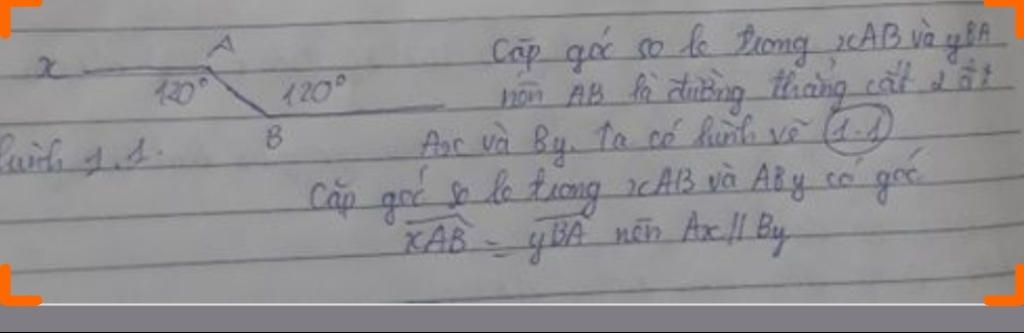 x
A
120°
120°
B
Hình 1.1.
Cặp góc so le trong xAB và yBA
nên AB là đường thẳng cắt 2
Ax và By. Ta có hình vẽ 1.1
Cặp góc so le trong xAB và ABy có góc
xAB = yBA nên Ax // By